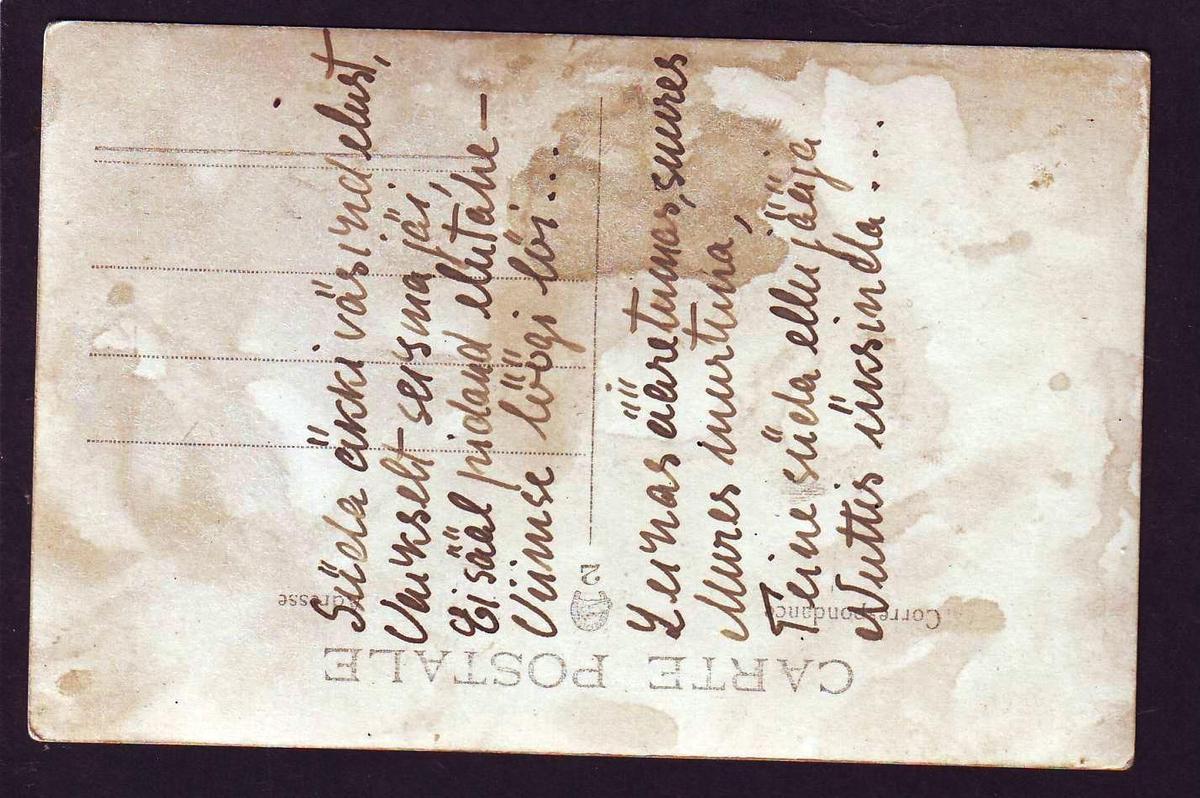 Süda äkki väsind elust,
Vaikselt seisma jäi,
Ei sääl pidand elutahe –
Viimse löögi lõi...
Leinas ääretumas, suures
Mures murtuna,
Teine süda ellu jääja
Nuttis üksinda...
CARTE POSTALE
Correspondance
Adresse
2